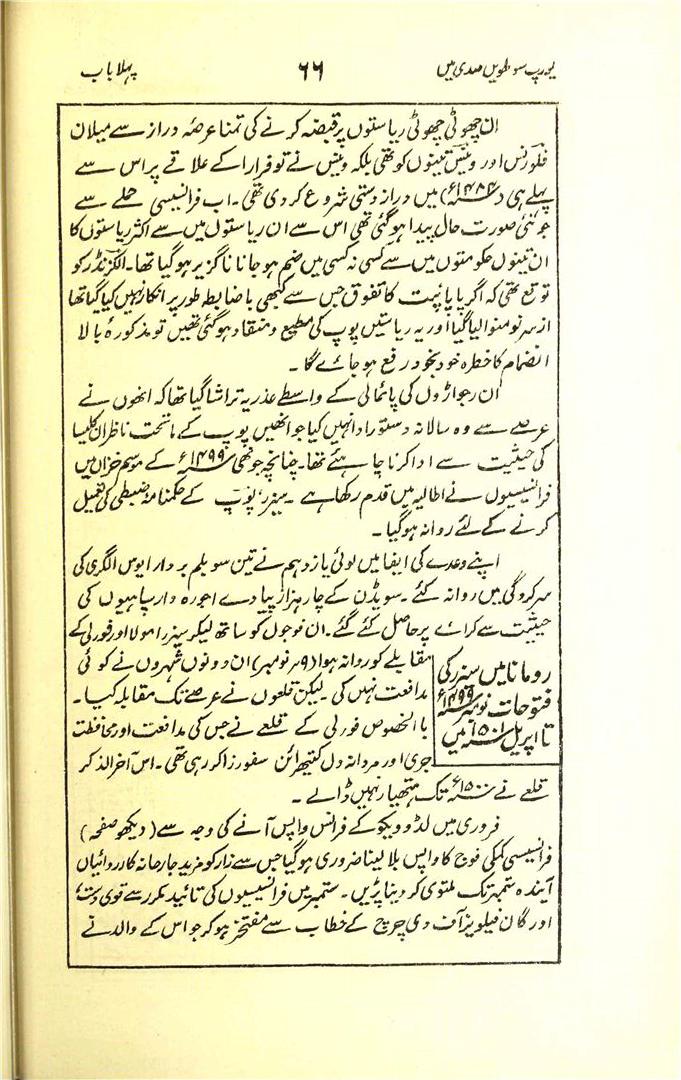 یورپ سولھویں صدی میں ۶۶ پہلا باب
ان چھوٹی چھوٹی ریاستوں پر قبضہ کرنے کی تمنا عرصۂ دراز سے میلان
فلورنس اور وینس تینوں کو تھی بلکہ وینس نے تو فرارا کے علاقے پر اس سے
پہلے ہی (۱۴۸۴ء) میں دراز دستی شروع کر دی تھی۔ اب فرانسیسی حملے سے
جو نئی صورت حال پیدا ہو گئی تھی اس سے ان ریاستوں میں سے اکثر ریاستوں کا
ان تینوں حکومتوں میں سے کسی نہ کسی میں ضم ہو جانا ناگزیر ہو گیا تھا۔ الگزنڈر کو
توقع تھی کہ اگر پاپائیت کا تفوق جس سے کبھی باضابطہ طور پر انکار نہیں کیا گیا تھا
از سر نو منوا لیا گیا اور یہ ریاستیں پوپ کی مطیع و منقاد ہو گئی تھیں تو مذکورۂ بالا
انضمام کا خطرہ خود بخود رفع ہو جائے گا۔
ان رجواڑوں کی پائمالی کے واسطے عذر یہ تراشا گیا تھا کہ انھوں نے
عرصے سے وہ سالانہ دستور ادا نہیں کیا جو انھیں پوپ کے ماتحت ناظران کلیسا
کی حیثیت سے ادا کرنا چاہئے تھا۔ چنانچہ جونہی ۱۴۹۹ء کے موسم خزاں میں
فرانسیسیوں نے اطالیہ میں قدم رکھا ہے۔ سیزر، پوپ کے حکمنامۂ ضبطی کی تعمیل
کرنے کے لئے روانہ ہو گیا۔
اپنے وعدے کی ایفا میں لوئی یازدہم نے تین سو بلم بردار ایوس الگری کی
سرکردگی میں روانہ کئے۔ سویڈن کے چار ہزار پیادے اجورہ دار سپاہیوں کی
حیثیت سے کرائے پر حاصل کئے گئے۔ ان فوجوں کو ساتھ لیکر سیزر امولا اور فورلی کے
مقابلے کو روانہ ہوا (۹ر نومبر) ان دونوں شہروں نے کوئی
مدافعت نہیں کی۔ لیکن قلعوں نے عرصے تک مقابلہ کیا۔
بالخصوص فورلی کے قلعے نے جس کی مدافعت اور محافظت
جری اور مردانہ دل کیتھرائن سفورزا کر رہی تھی۔ اس آخر الذکر
رومانا میں سیزر کی
فتوحات نومبر ۱۴۹۹ء
تا اپریل ۱۵۰۱ء میں
قلعے نے ۱۵۰۰ء تک ہتھیار نہیں ڈالے۔
فروری میں لڈوویکو کے فرانس واپس آنے کی وجہ سے (دیکھو صفحہ )
فرانسیسی کمکی فوج کا واپس بلا لینا ضروری ہو گیا جس سے زار کو مزید جارحانہ کارروائیاں
آیندہ ستمبر تک ملتوی کر دینا پڑیں۔ ستمبر میں فرانسیسیوں کی تائید مکرر سے قوی دست،
اور گان فیلونیز آف دی چرچ کے خطاب سے مفتخر ہو کر جو اس کے والد نے